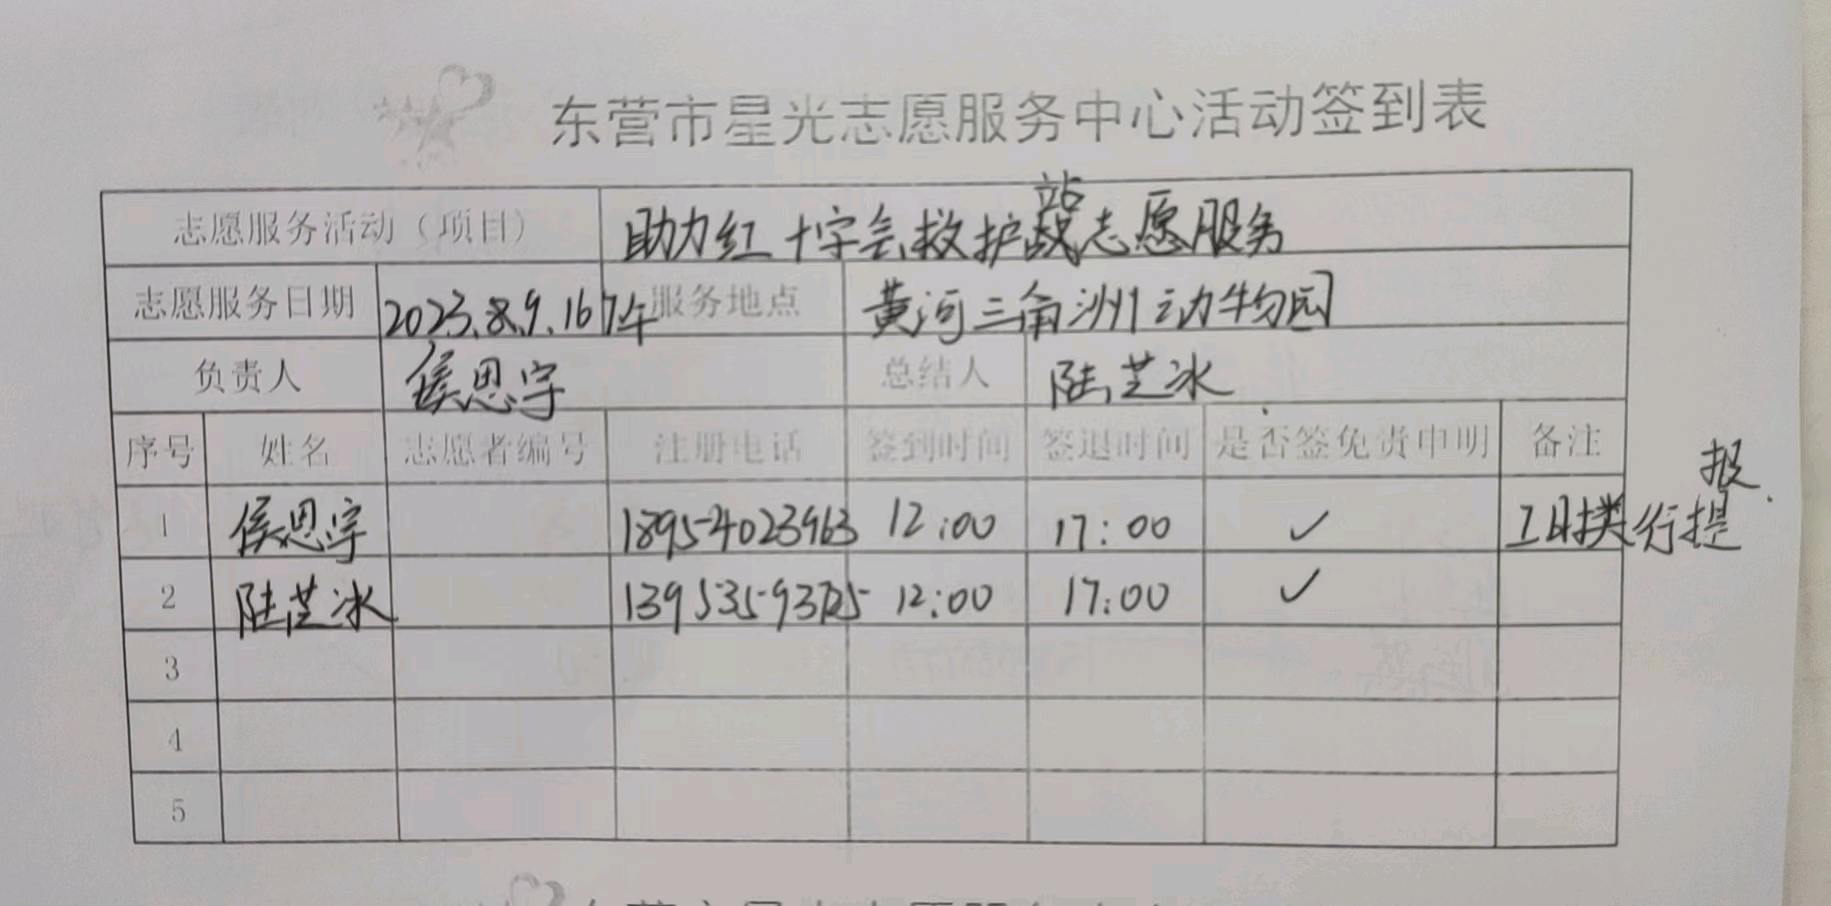 东营市星光志愿服务中心活动签到表
志愿服务活动（项目） 助力红十字会救护站志愿服务
志愿服务日期 2023.8.9.16下午 服务地点 黄河三角洲动物园
负责人 侯思宇 总结人 陆芝冰
序号 姓名 志愿者编号 注册电话 签到时间 签退时间 是否签免责申明 备注
1 侯思宇 18954023963 12:00 17:00 ✓
2 陆芝冰 12:00 17:00 ✓
3
4
5